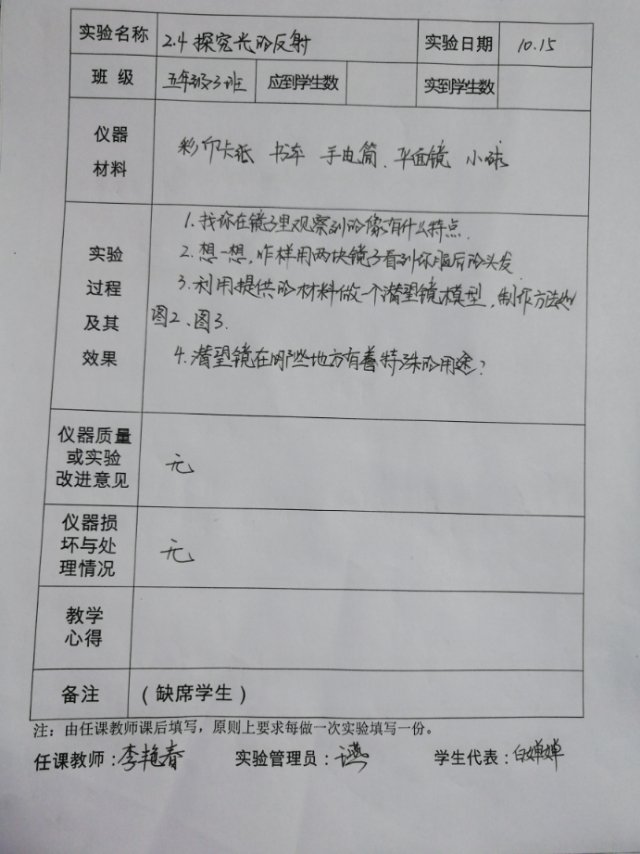 实验名称 2.4 探究光的反射 实验日期 10.15
班级 五年级3班 应到学生数 实到学生数
仪器
材料
彩印卡纸 手电筒、平面镜 小球
实验
过程
及其
效果
1. 找你在镜子里观察到的像有什么特点.
2. 想一想,咋样用两块镜子看到你脑后的头发
3. 利用提供的材料做一个潜望镜模型,制作方法如
图2、图3.
4. 潜望镜在哪些地方有着特殊的用途?
仪器质量
或实验
改进意见
无
仪器损
坏与处
理情况
无
教学
心得
备注 (缺席学生)
注:由任课教师课后填写,原则上要求每做一次实验填写一份。
任课教师:李艳春 实验管理员: 学生代表:白婵婵